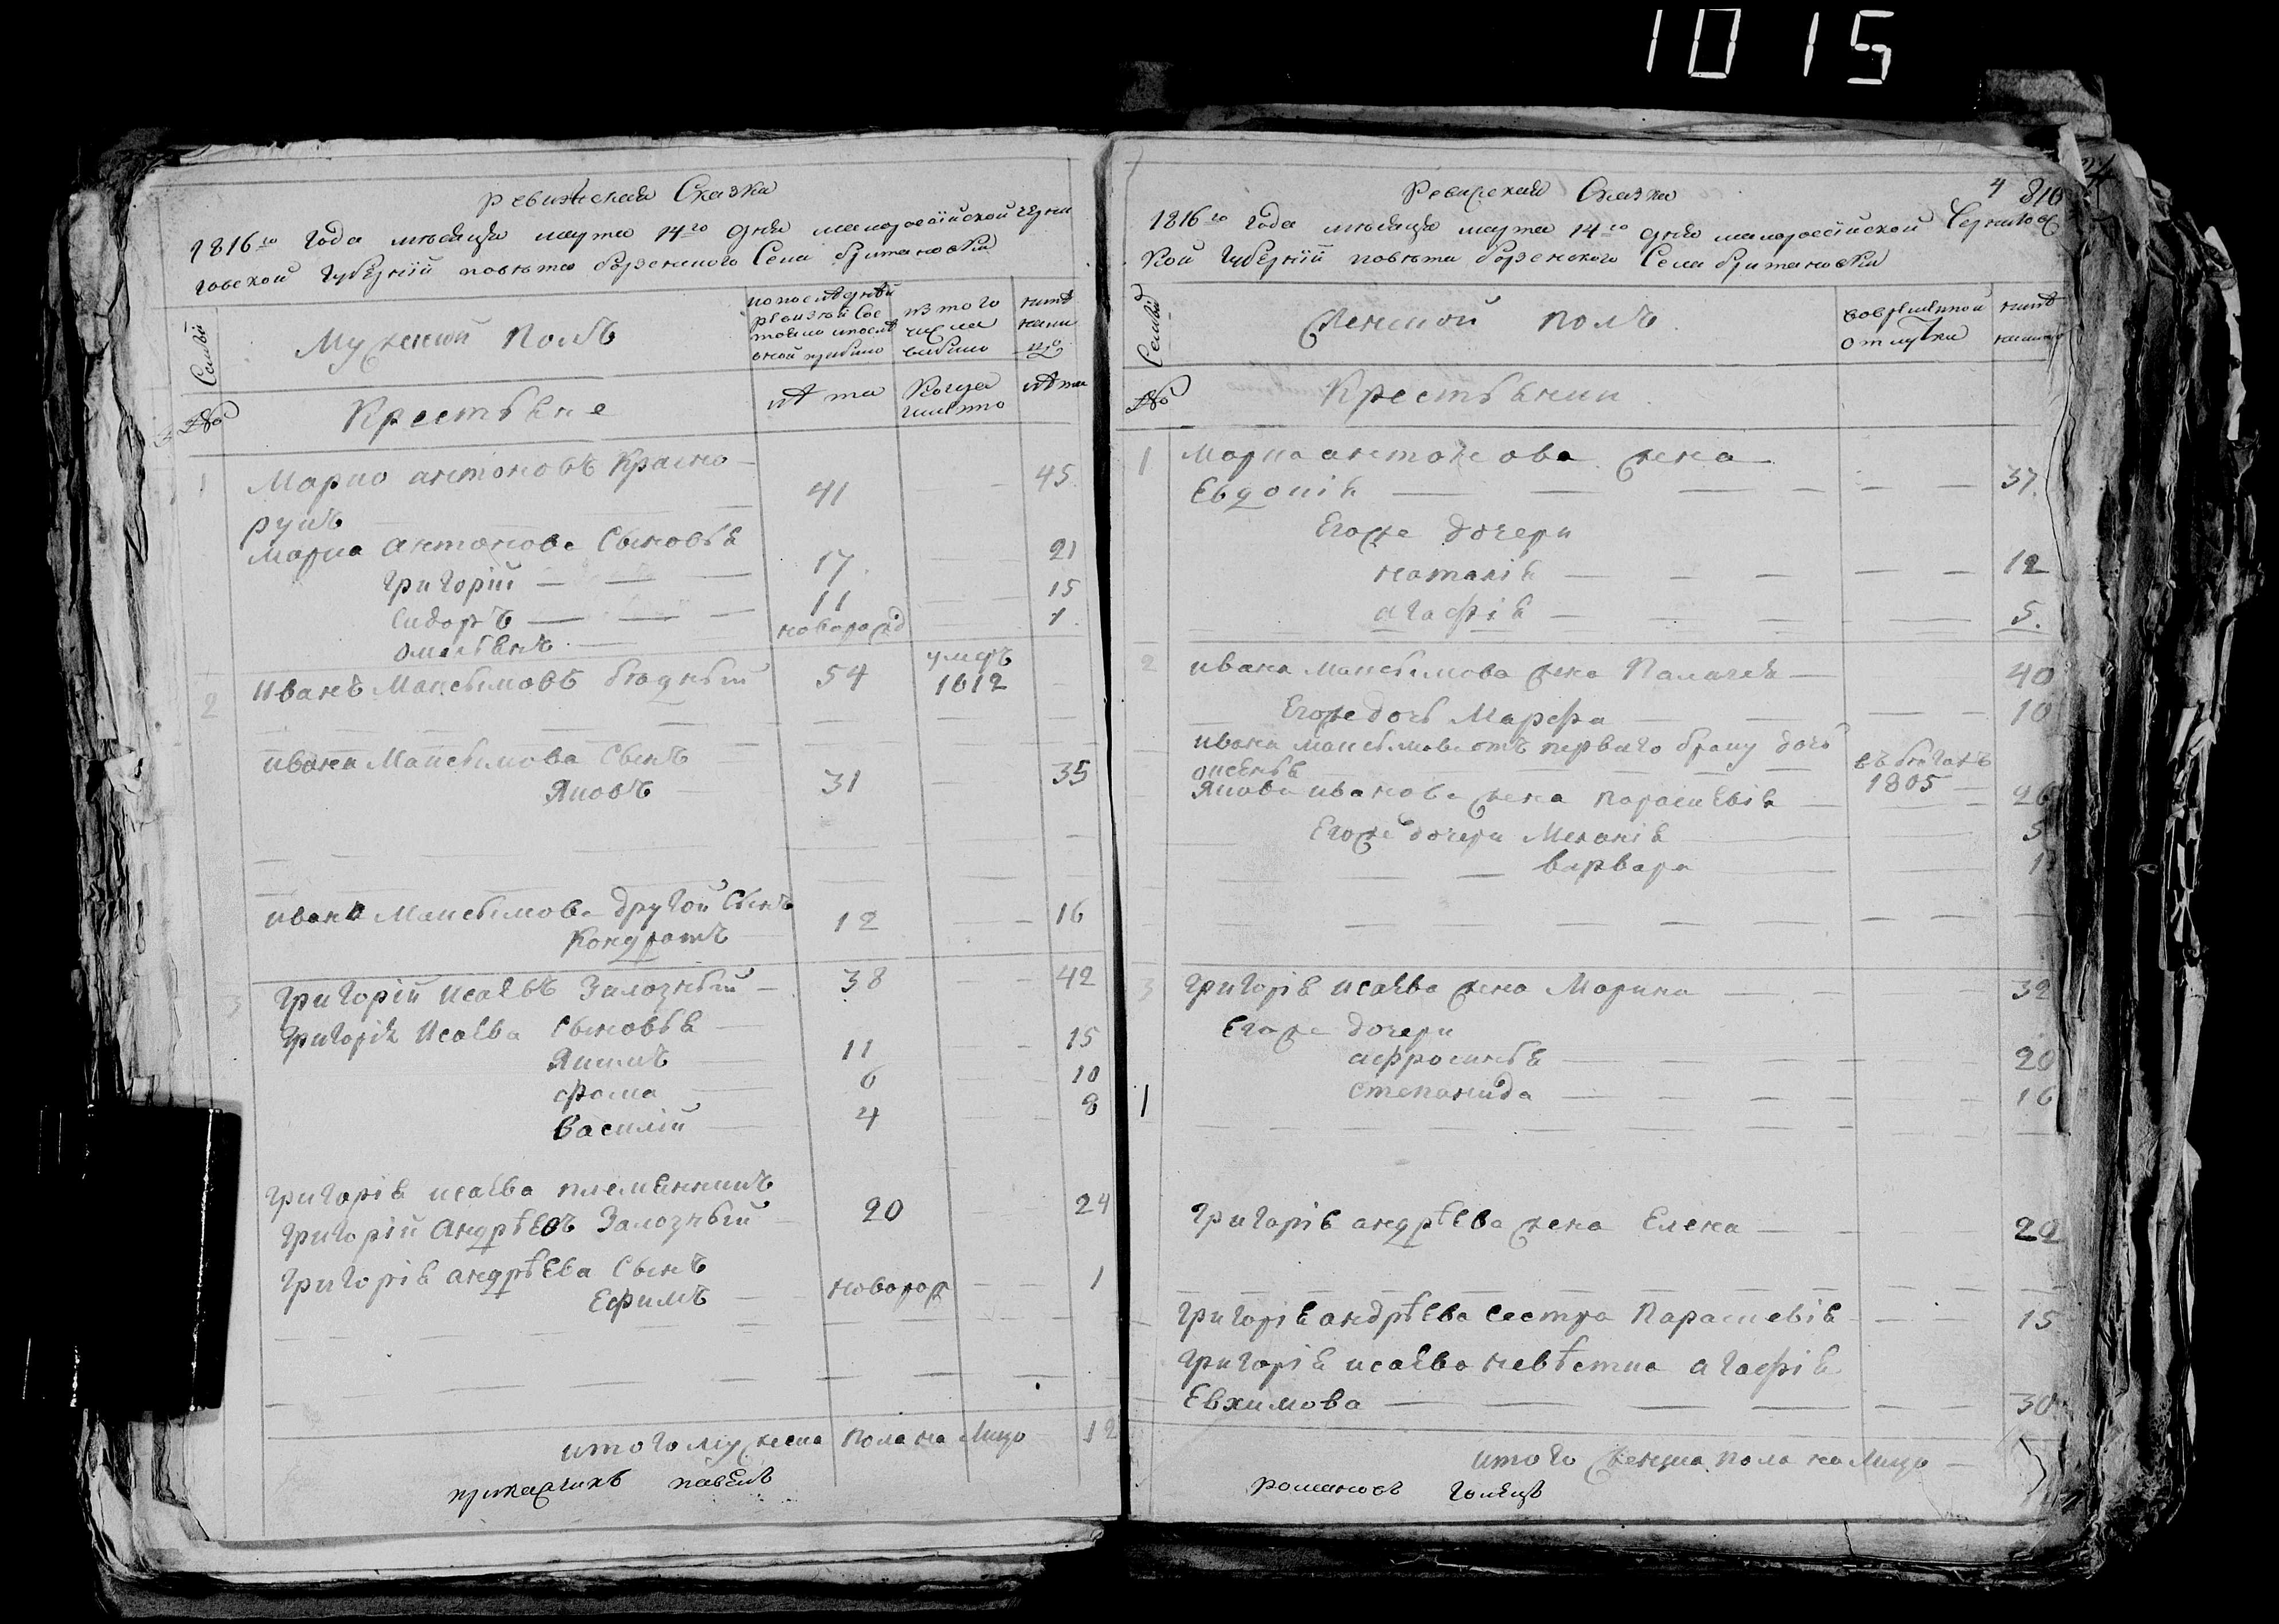 1015
ревизская Сказка
1816го года мѣсяца марта 14го дня малороссійской черни
говской губерніи повѣта борзенского Села британовки
Семьи
Мужеский Полъ
по последней
ревизіи сос
тояло и послѣ
оной прибыло
из того
числа
выбыло
нинѣ
на ли
цо
№
Крестьяне
лѣта
Когда
имянно
лѣта
1
Марко антоновъ Красно
рупъ
41
45
Марка антонова Сыновья
григорій
17
21
Сидоръ
11
15
омельянъ
Новорожд
1
2
Иванъ Максимовъ бѣдный
54
умръ
1812
ивана Максимова Сынъ
Яковъ
31
35
ивана Максимова другой Сынъ
Кондратъ
12
16
3
григорій исаевъ Залозный
38
42
григорія Исаева Сыновья
Якимъ
11
15
фома
6
10
Василій
4
8
григорія исаева племянникъ
григорій андрѣевъ Залозный
20
24
григорія андрѣева Сынъ
Ефимъ
новорож
1
итого мужеска пола на лицо 12
прикащикъ павелъ
Ревизская Сказка
4
810
1816го года мѣсяца марта 14го дня малороссійской Черниговс
кой губерніи повѣта борзенского Села британовки
Семьи
Женской полъ
во временной
отлучки
нинѣ
на лицо
№
Крестьянки
1
Марка антонова жена
Евдокія
37
Егоже дочери
наталія
12
агафія
5
2
ивана максимова жена Палагея
40
Егоже дочь Марфа
10
ивана максимова отъ первого браку дочь
оксенья
въ бѣгахъ
1805
Якова иванова жена параскевія
26
Егоже дочери Меланія
5
варвара
1
3
григорія исаева жена Марина
32
Егоже дочери
афросинья
20
1
степанида
16
григорія андрѣева жена Елена
22
григорія андрѣева сестра Параскевія
15
григорія исаева невѣстка агафія
Евхимова
30
итого женска пола на лицо
романовъ